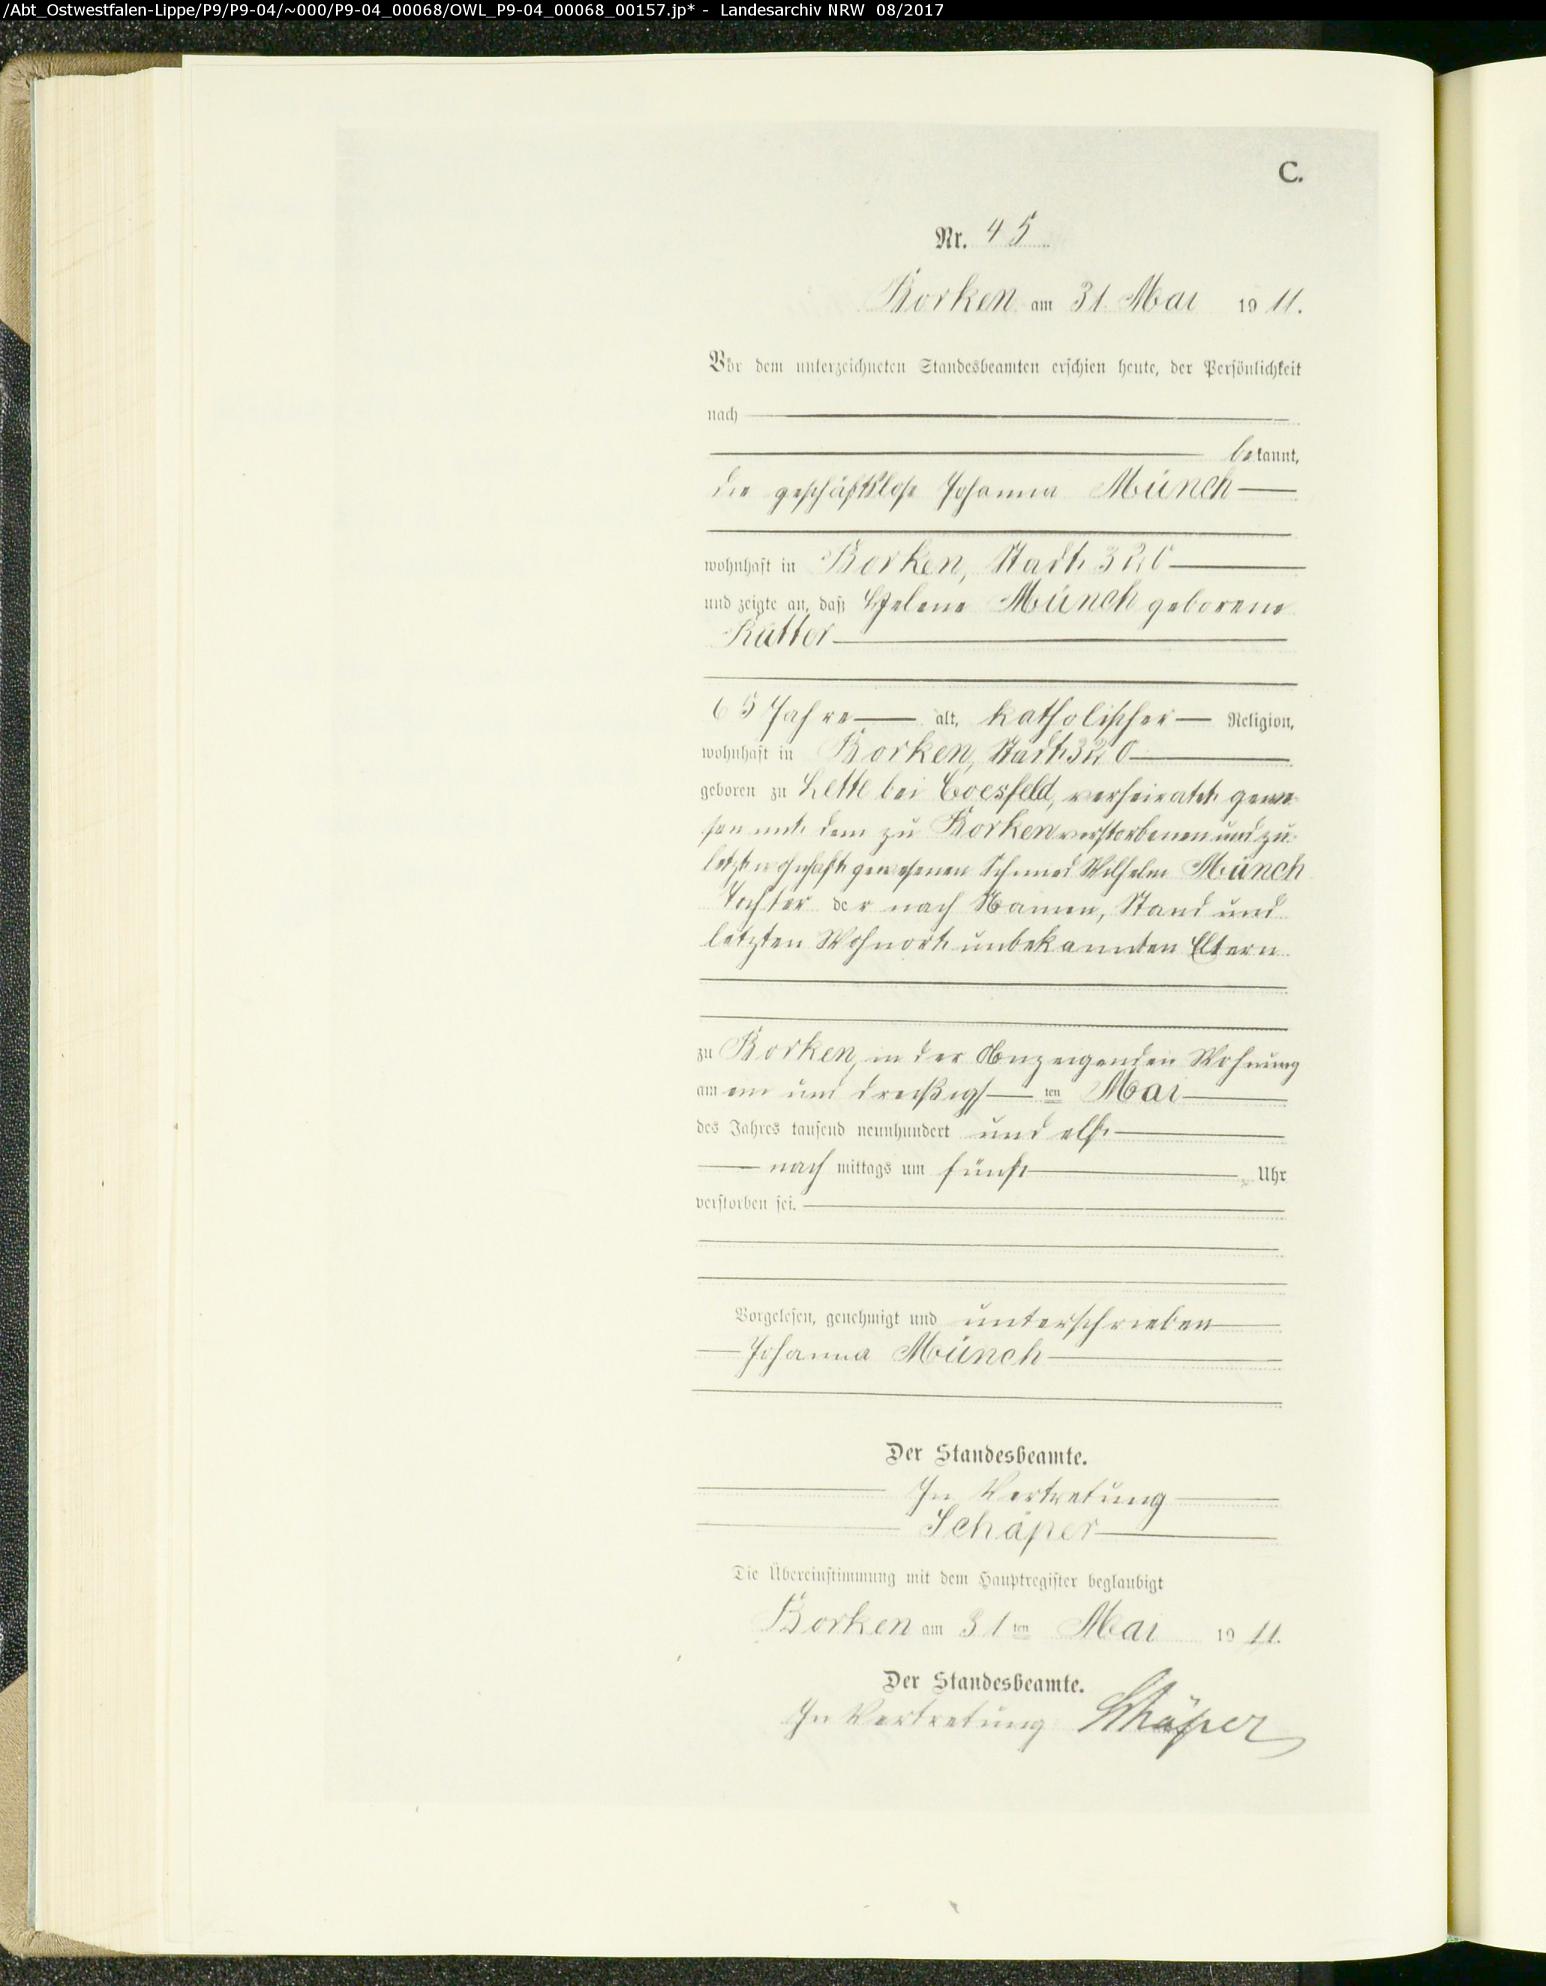 /Abt_Ostwestfalen-Lippe/P9/P9-04/~000/P9-04_00068/OWL_P9-04_00068_00157.jp* - Landesarchiv NRW 08/2017
C.
Nr. 45
Borken am 31. Mai 1911.
Vor dem unterzeichneten Standesbeamten erschien heute, der Persönlichkeit
nach
bekannt,
die geschäftslose Johanna Münch
wohnhaft in Borken, Stadt 320
und zeigte an, daß Helene Münch geborene
Rütter
65 Jahre alt, katholischer Religion,
wohnhaft in Borken, Stadt 320
geboren zu Lette bei Coesfeld, verheiratet gewe-
sen mit dem zu Borken verstorbenen und zu-
letzt wohnhaft gewesenen Schmied Wilhelm Münch
Tochter der nach Namen, Stand und
letzten Wohnort unbekannten Eltern
zu Borken, in der Anzeigenden Wohnung
am ein und dreißigsten Mai
des Jahres tausend neunhundert und elf
nachmittags um fünf Uhr
verstorben sei.
Vorgelesen, genehmigt und unterschrieben
Johanna Münch
Der Standesbeamte.
In Vertretung
Schäper
Die Übereinstimmung mit dem Hauptregister beglaubigt
Borken am 31ten Mai 1911.
Der Standesbeamte.
In Vertretung Schäper